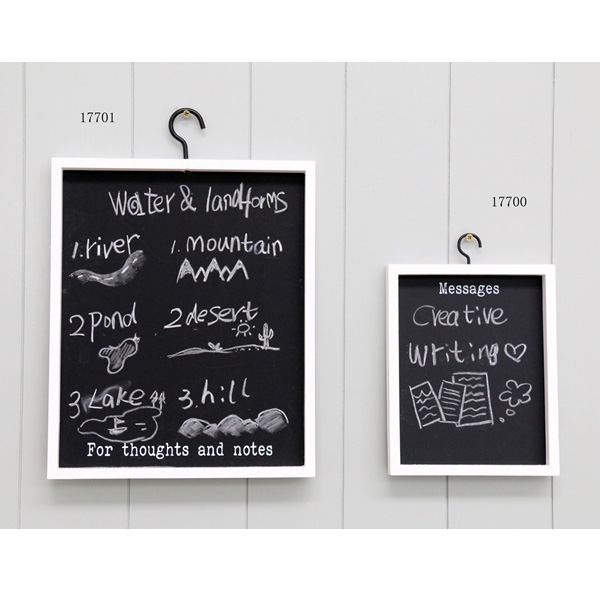 17701
Water & landforms
1. river
1. mountain
2 pond
2 desert
3. Lake
3. hill
For thoughts and notes
17700
Messages
Creative
Writing